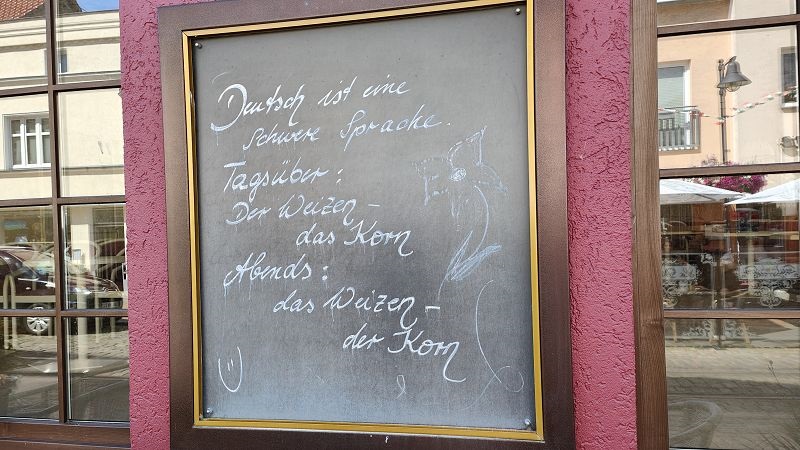 Deutsch ist eine
schwere Sprache.
Tagsüber:
Der Weizen –
das Korn
Abends:
das Weizen –
der Korn